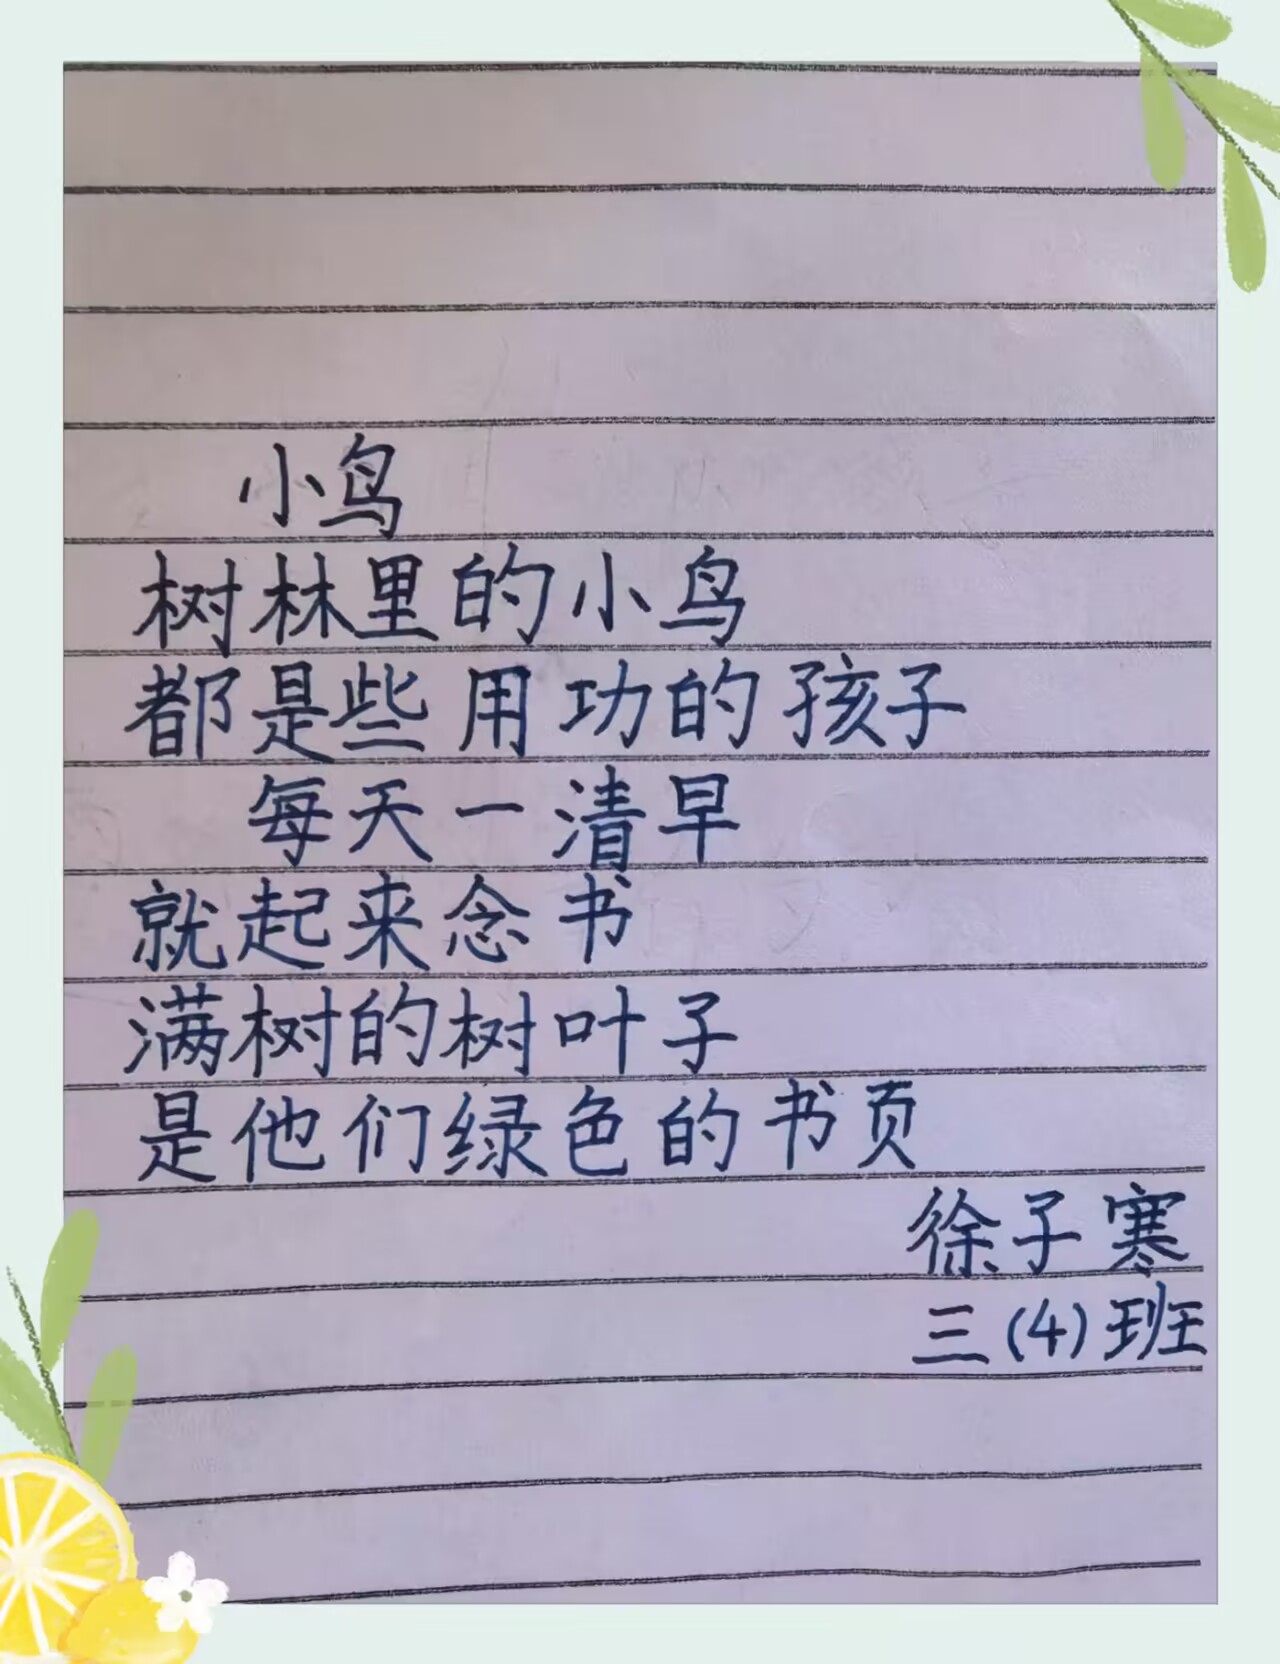 小鸟
树林里的小鸟
都是些用功的孩子
每天一清早
就起来念书
满树的树叶子
是他们绿色的书页
徐子寒
三(4)班